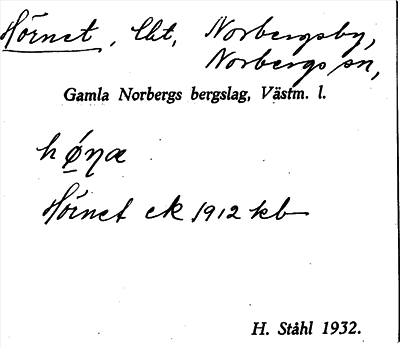 Hörnet, lht, Norbergsby,
Norbergs sn,
Gamla Norbergs bergslag, Västm. l.
hǿ̱ŋæ
Hörnet ek 1912 kb
H. Ståhl 1932.